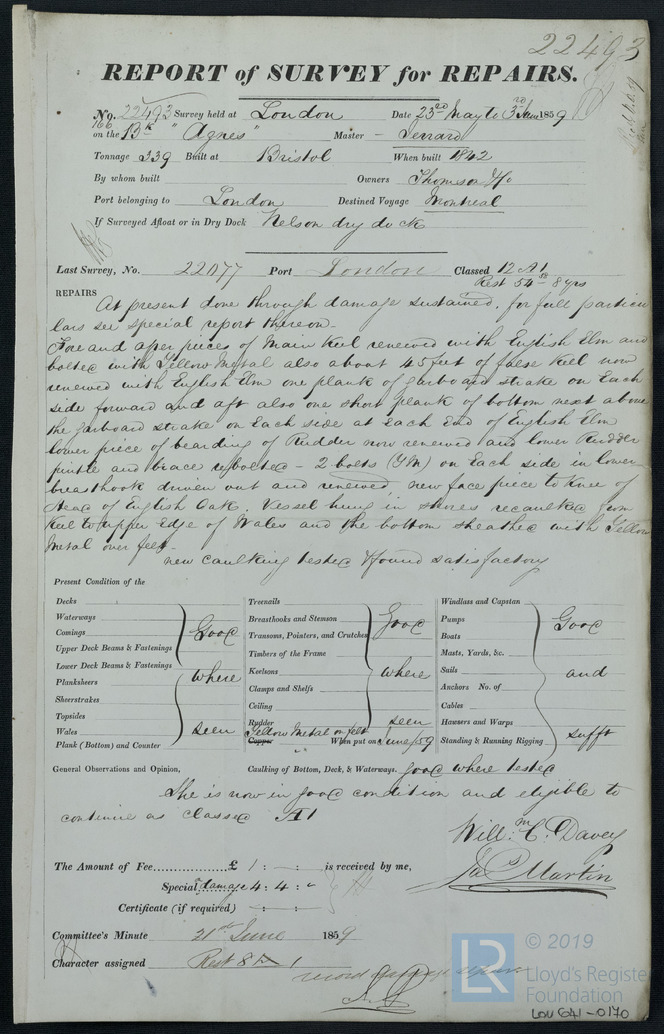 22493
REPORT of SURVEY for REPAIRS.
No. 22493 Survey held at London Date 23rd May to 3rd June 1859
166
on the Bk "Agnes" Master - Jerrard
Tonnage 339 Built at Bristol When built 1842
By whom built Owners Thomson & Co
Port belonging to London Destined Voyage Montreal
If Surveyed Afloat or in Dry Dock Nelson dry dock
Last Survey, No. 22077 Port London Classed 12 A1
Rest 54 - 8 yrs
REPAIRS At present done through damage sustained, for full particu
lars see special report thereon -
Fore and after pieces of Main Keel renewed with English Elm and
bolted with Yellow Metal also about 45 feet of false keel now
renewed with English Elm one plank of garboard strake on Each
side forward and aft also one short plank of bottom next above
the garboard strake on Each side at Each End of English Elm
lower piece of bearding of Rudder now renewed and lower Rudder
pintle and brace rebolted - 2 bolts (YM) on Each side in lower
breasthook driven out and renewed, new face piece to Knee of
Head of English Oak. Vessel hung in shores recaulked from
Keel to upper Edge of Wales and the bottom sheathed with Yellow
Metal over felt -
new caulking tested & found satisfactory
Present Condition of the
Decks
Waterways
Comings
Upper Deck Beams & Fastenings
Lower Deck Beams & Fastenings
Planksheers
Sheerstrakes
Topsides
Wales
Plank (Bottom) and Counter
Good
where
seen
Treenails
Breasthooks and Stemson
Transoms, Pointers, and Crutches
Timbers of the Frame
Keelsons
Clamps and Shelfs
Ceiling
Rudder
Good
where
seen
Yellow Metal on felt
Copper When put on June/59
Windlass and Capstan
Pumps
Boats
Masts, Yards, &c.
Sails
Anchors No. of
Cables
Hawsers and Warps
Standing & Running Rigging
Good
and
sufft
General Observations and Opinion, Caulking of Bottom, Deck, & Waterways. good where tested
She is now in good condition and eligible to
continue as classed A1
Willm. C. Davey
Jas Martin
The Amount of Fee £ 1 : - : - is received by me,
Special damage 4 : 4 : -
Certificate (if required) - : - :
Committee's Minute 21st June 1859
Character assigned Rest 8 A 1
© 2019
LR
Lloyd's Register
Foundation
LON 641-0170